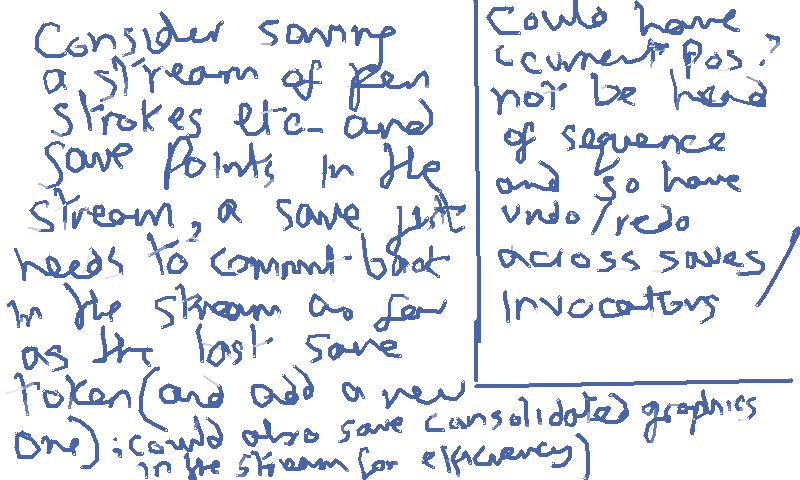 Consider saving
a stream of pen
strokes etc- and
save points in the
stream, a save just
needs to commit back
in the stream as far
as the last save
token (and add a new
one); could also save consolidated graphics
in the stream for efficiency)
Could have
current pos.?
not be head
of sequence
and so have
undo/redo
across saves/
invocations